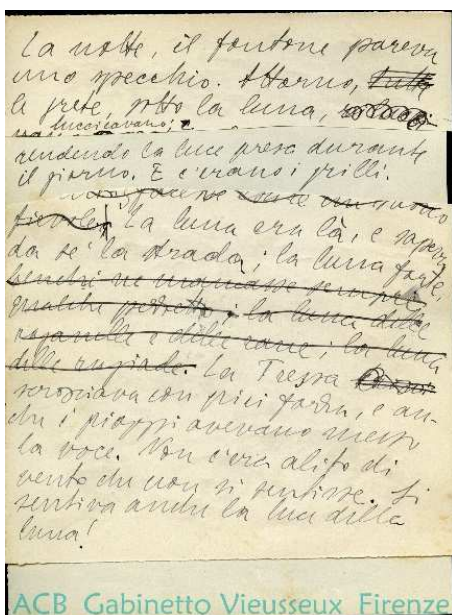 La notte, il fontone pareva
uno specchio. Attorno, tutte
le prete, sotto la luna,
luccicavano;
rendendo la luce presa durante
il giorno. E c'erano i grilli.
La luna era là, e sapeva
da sé la strada; la luna forte,
benchè ne mancasse sempre
qualche pezzetto; la luna delle
raganelle e delle rane; la luna
delle rugiade. La Tressa
scrosciava con più forza, e an-
che i pioppi avevano messo
la voce. Non c'era alito di
vento che non si sentisse. Si
sentiva anche la luce della
luna!
ACB Gabinetto Vieusseux Firenze